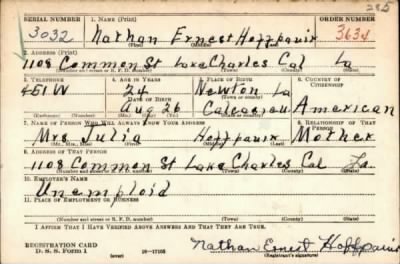 285
SERIAL NUMBER 1. NAME (Print) ORDER NUMBER
3032 Nathan Ernest Hoffpauir 3634
(First) (Middle) (Last)
2. ADDRESS (Print)
1108 Common St Lake Charles Cal La
(Number and street or R. F. D. number) (Town) (County) (State)
3. TELEPHONE 4. AGE IN YEARS 5. PLACE OF BIRTH 6. COUNTRY OF CITIZENSHIP
451W 24 Newton La
DATE OF BIRTH
Aug 26 Calcasieu American
7. NAME OF PERSON WHO WILL ALWAYS KNOW YOUR ADDRESS 8. RELATIONSHIP OF THAT PERSON
Mrs. Julia Hoffpauir Mother
9. ADDRESS OF THAT PERSON
1108 Common St Lake Charles Cal La
(Number and street or R. F. D. number) (Town) (County) (State)
10. EMPLOYER'S NAME
Unemploid
11. PLACE OF EMPLOYMENT OR BUSINESS
(Number and street or R. F. D. number) (Town) (County) (State)
I AFFIRM THAT I HAVE VERIFIED ABOVE ANSWERS AND THAT THEY ARE TRUE.
REGISTRATION CARD
D. S. S. Form 1 (over) 16-17105 Nathan Ernest Hoffpauir
(Registrant's signature)